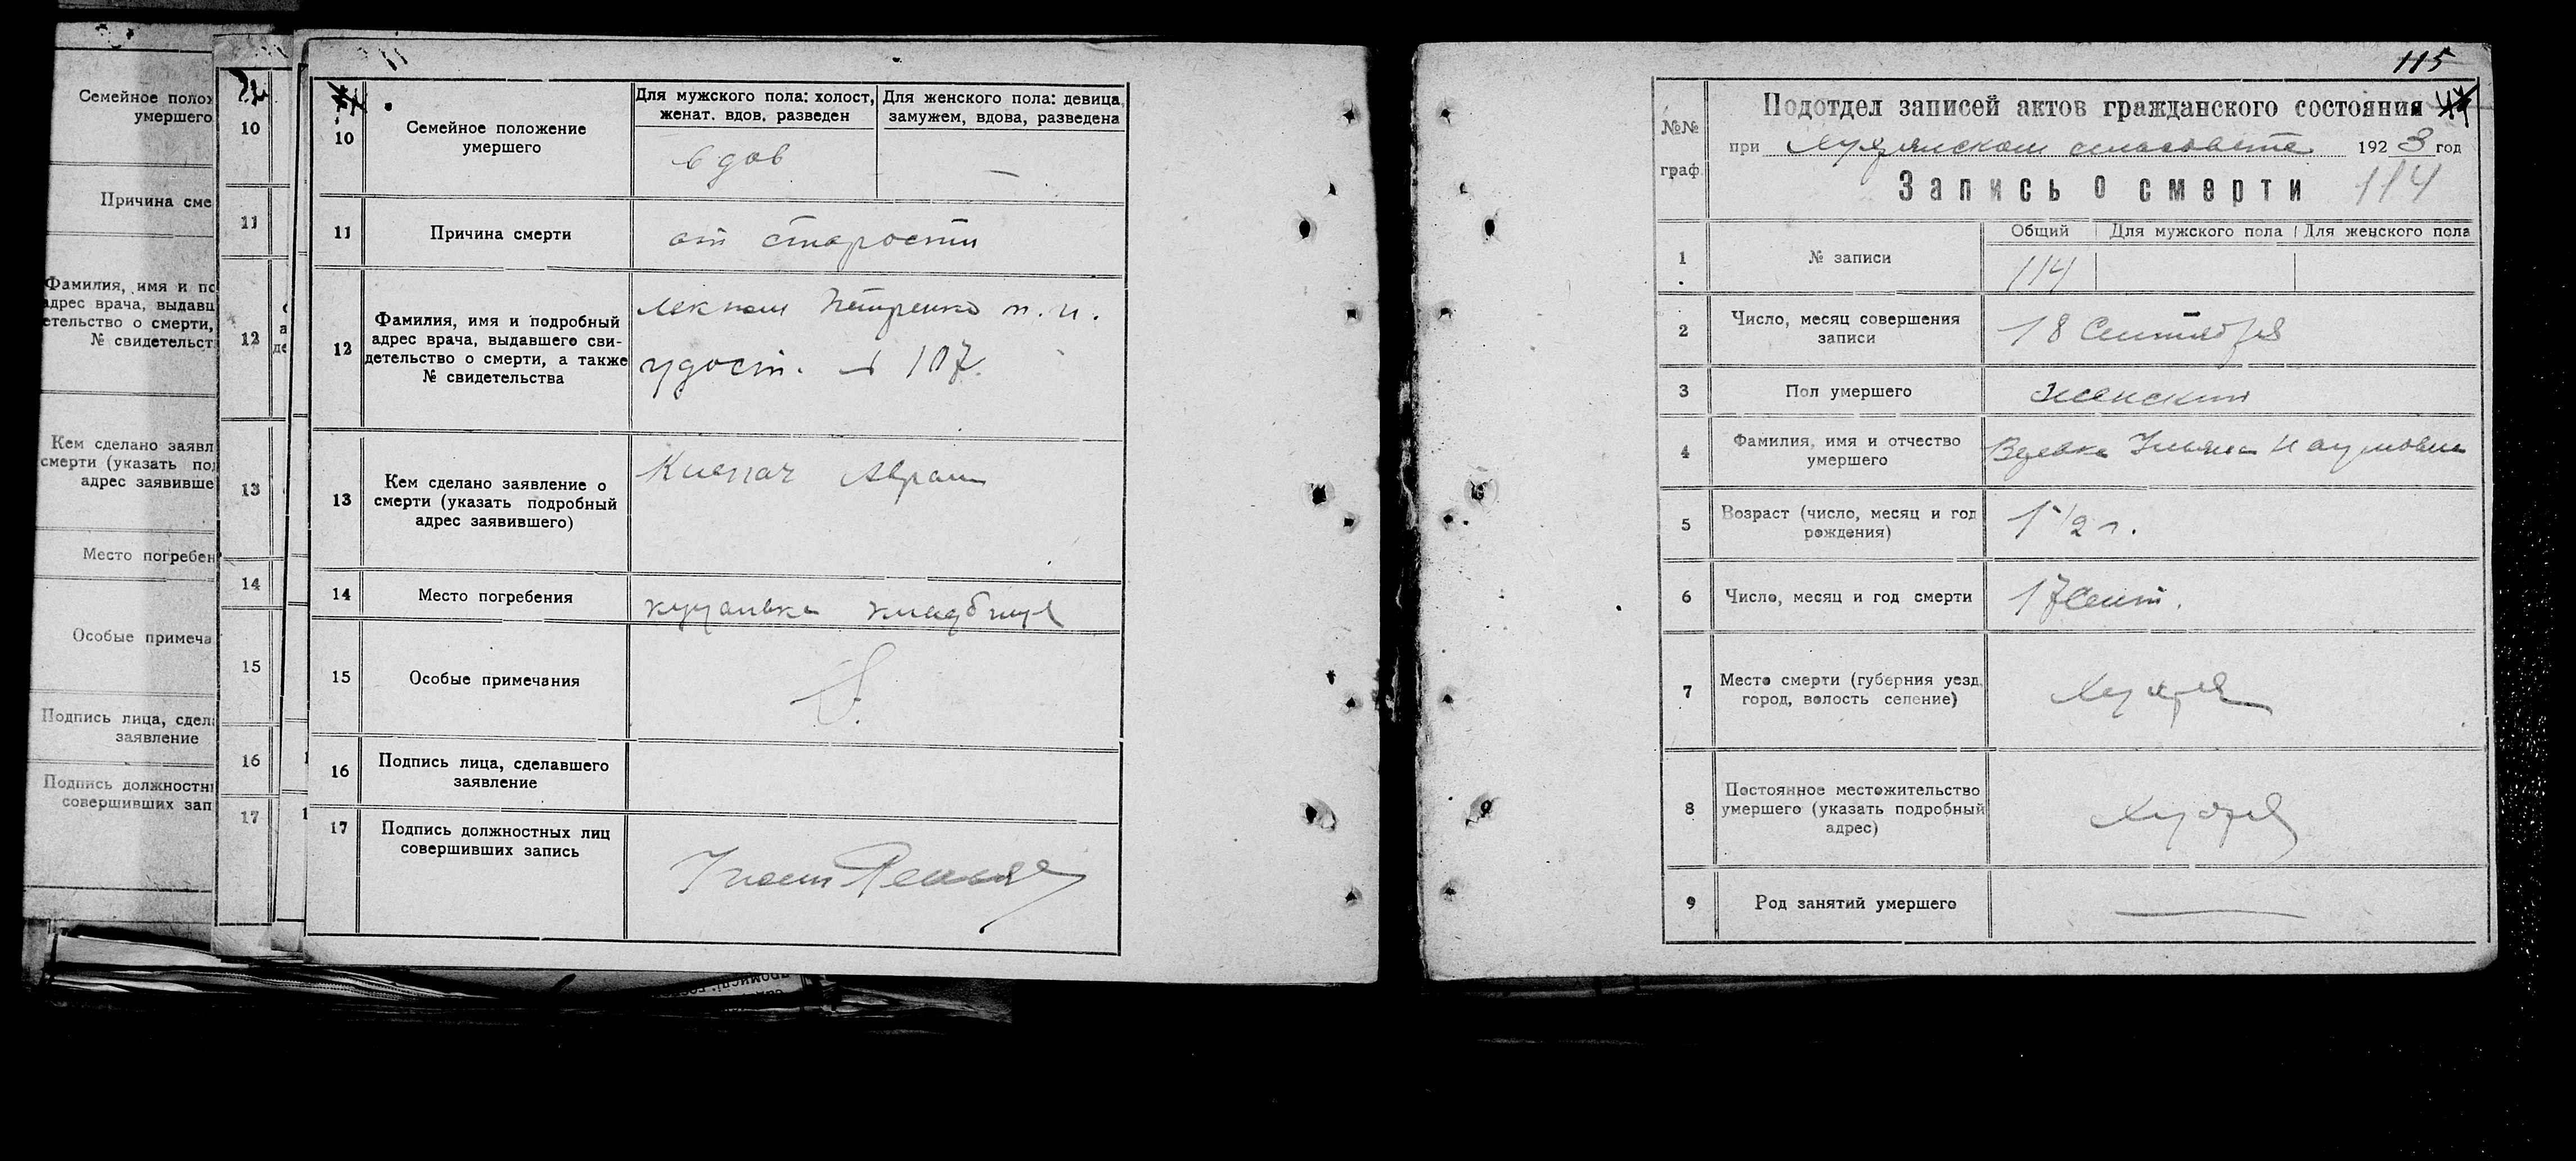 Семейное полож
умершего
Причина сме
Фамилия, имя и по
адрес врача, выдавш
етельство о смерти,
№ свидетельст
Кем сделано заявл
смерти (указать под
адрес заявивше
Место погребен
Особые примеча
Подпись лица, сдела
заявление
Подпись должностн
совершивших зап
10
11
12
13
14
15
16
17
10
Семейное положение
умершего
Для мужского пола: холост,
женат. вдов. разведен
Для женского пола: девица,
замужем, вдова, разведена
вдов
—
11
Причина смерти
от старости
12
Фамилия, имя и подробный
адрес врача, выдавшего сви-
детельство о смерти, а также
№ свидетельства
лекпом Петренко
удост. № 107.
13
Кем сделано заявление о
смерти (указать подробный
адрес заявившего)
Авраам
14
Место погребения
кладбище
15
Особые примечания
16
Подпись лица, сделавшего
заявление
17
Подпись должностных лиц
совершивших запись
115
№№
граф.
Подотдел записей актов гражданского состояния
при 1923 год
Запись о смерти 114
1
№ записи
Общий
Для мужского пола
Для женского пола
114
2
Число, месяц совершения
записи
18 Сентября
3
Пол умершего
женский
4
Фамилия, имя и отчество
умершего
Ульяна Наумовна
5
Возраст (число, месяц и год
рождения)
1 1/2 г.
6
Число, месяц и год смерти
17 Сент.
7
Место смерти (губерния уезд.
город, волость селение)
8
Постоянное местожительство
умершего (указать подробный
адрес)
9
Род занятий умершего
—